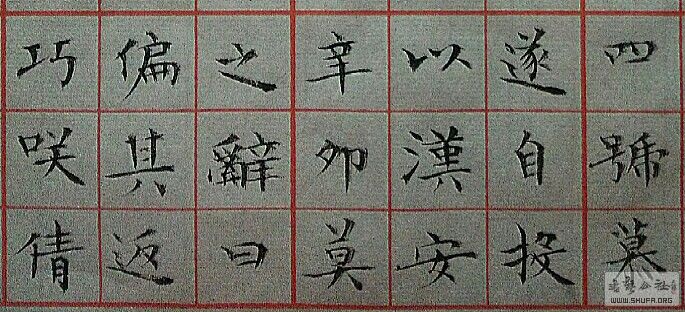 四號慕
遂自投
以漢安
辛卯莫
之辭曰
偏其返
巧咲倩
WWW.SHUFA.ORG